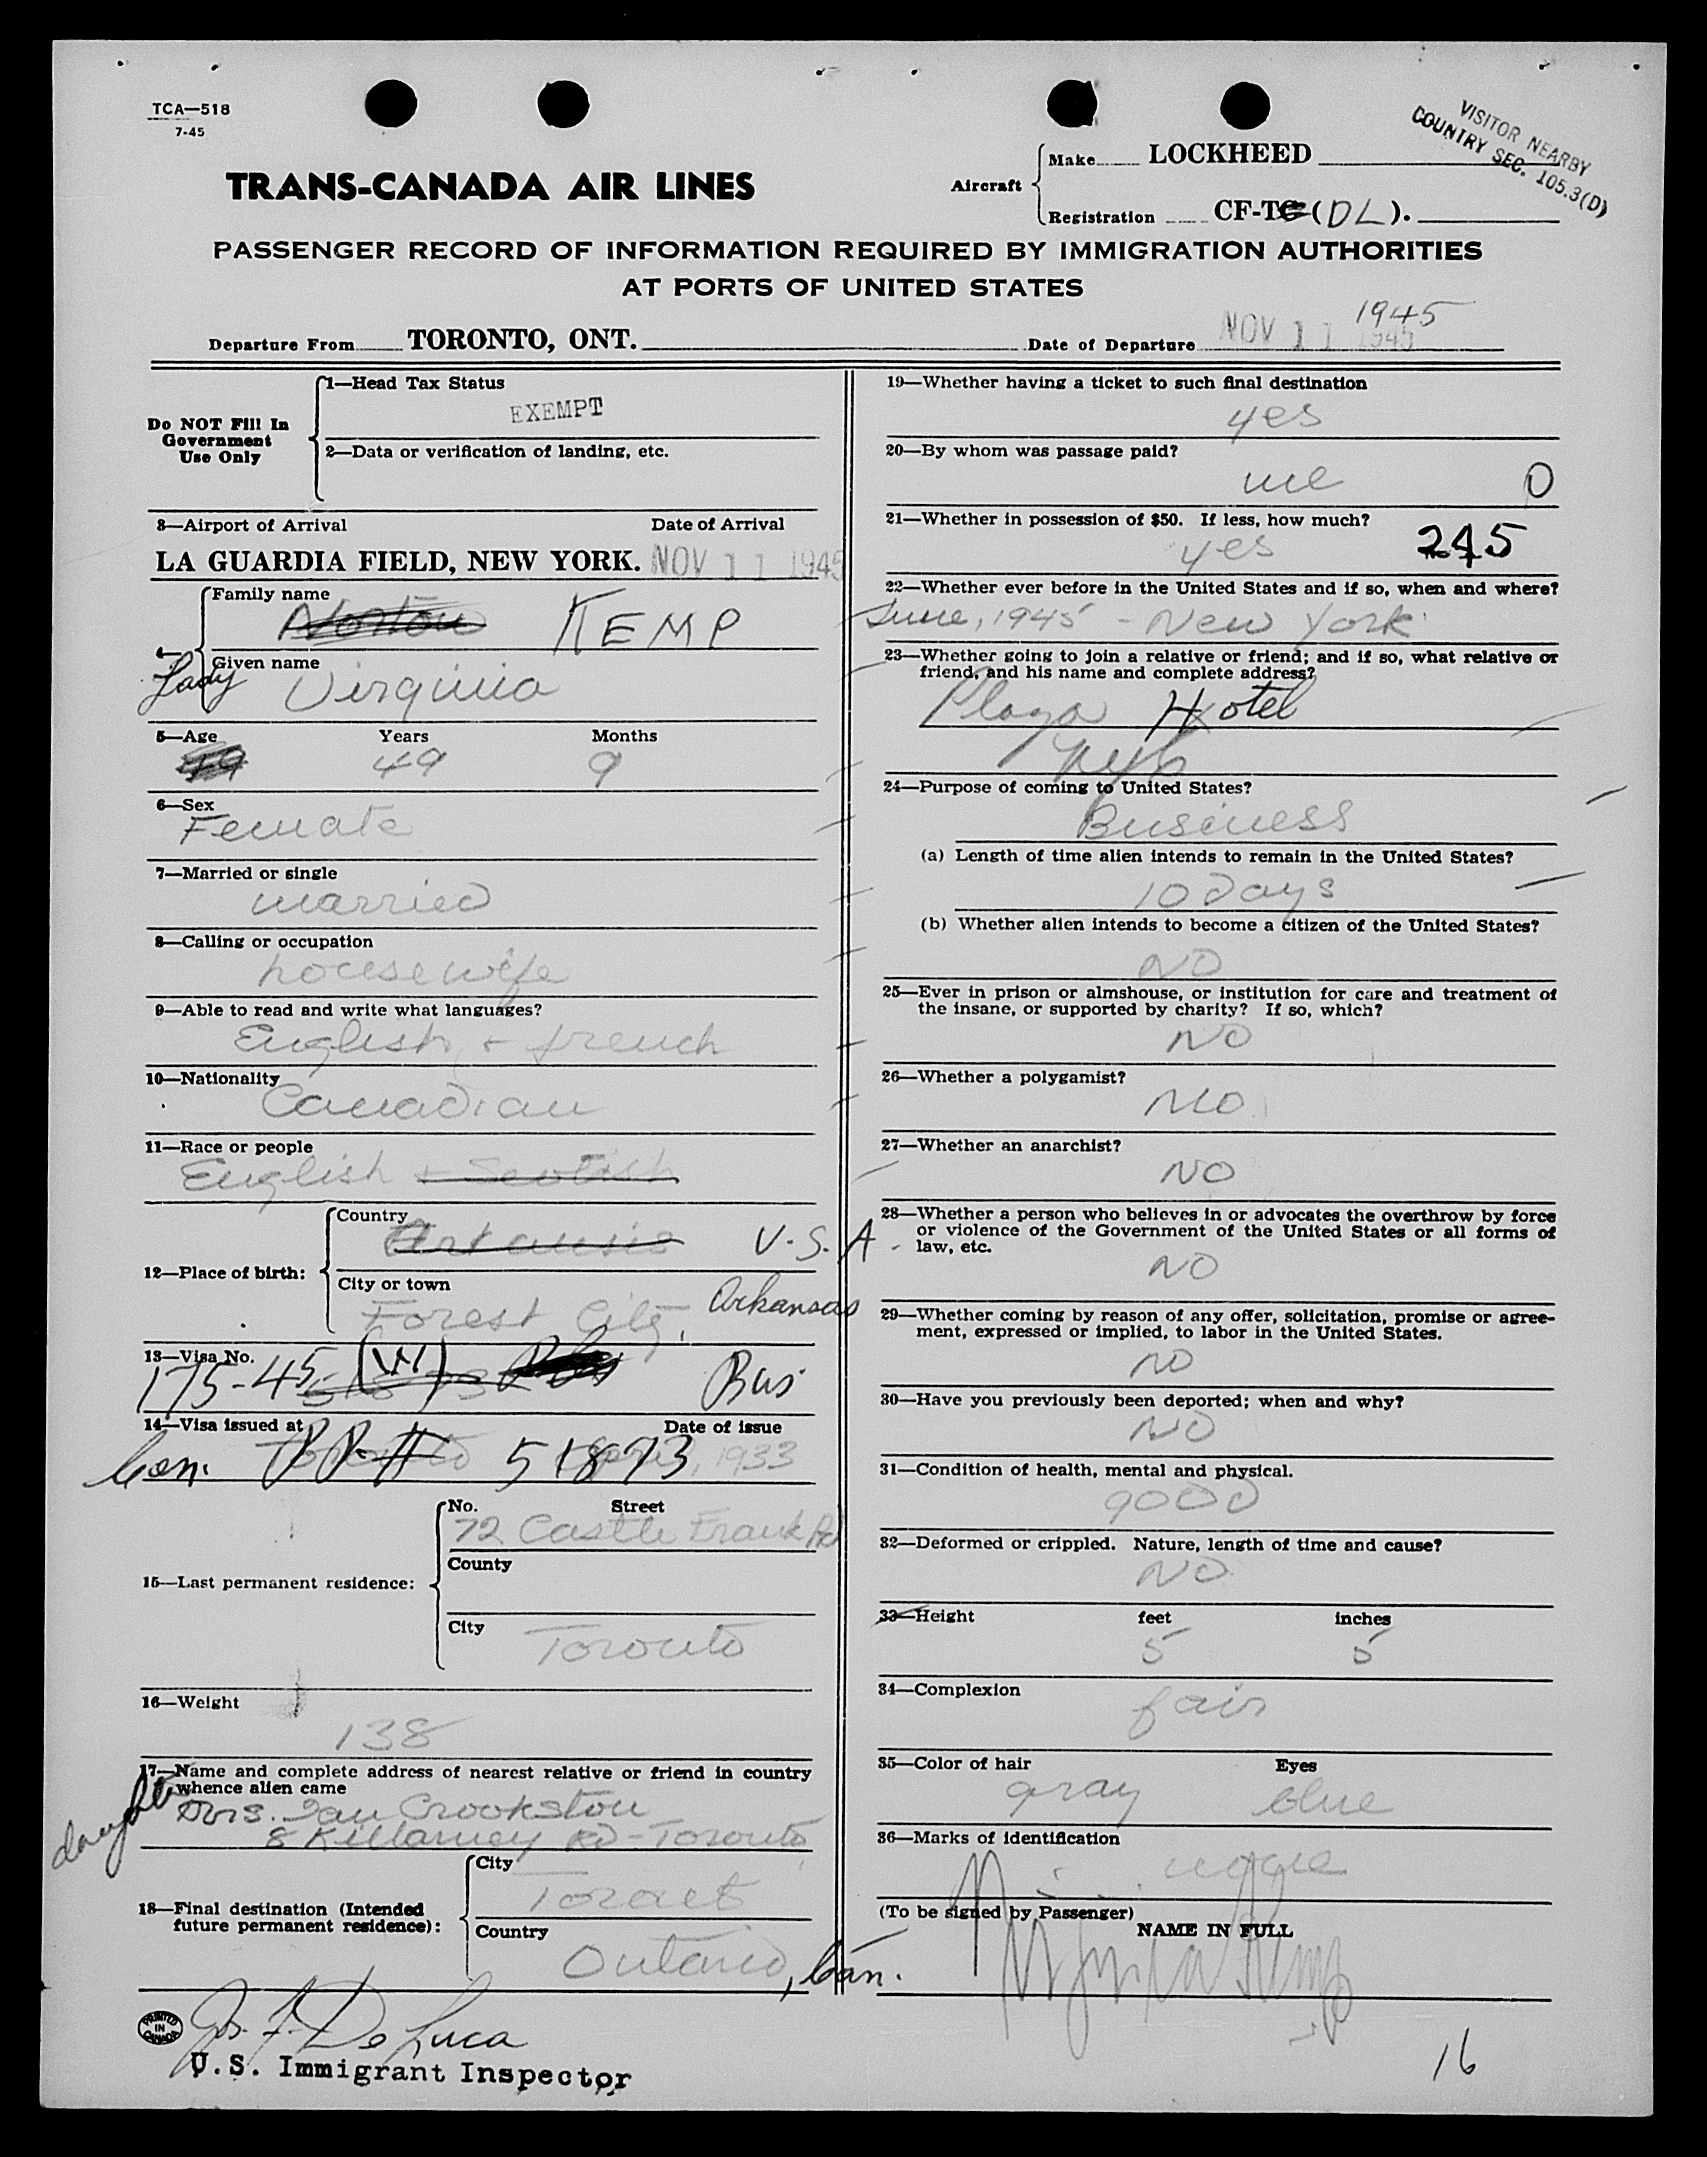 TCA—518
7-45
VISITOR NEARBY
COUNTRY SEC. 105.3(D)
TRANS-CANADA AIR LINES
Aircraft
Make LOCKHEED
Registration CF-TC (DL).
PASSENGER RECORD OF INFORMATION REQUIRED BY IMMIGRATION AUTHORITIES
AT PORTS OF UNITED STATES
1945
Departure From TORONTO, ONT. Date of Departure NOV 11 1945
Do NOT Fill In
Government
Use Only
1—Head Tax Status
EXEMPT
2—Data or verification of landing, etc.
3—Airport of Arrival Date of Arrival
LA GUARDIA FIELD, NEW YORK. NOV 11 1945
4—
Family name
Norton KEMP
Given name
Lady Virginia
5—Age Years Months
49 49 9
6—Sex
Female
7—Married or single
married
8—Calling or occupation
housewife
9—Able to read and write what languages?
English + french
10—Nationality
Canadian
11—Race or people
English + Scotish
12—Place of birth:
Country
Arkansis U.S.A.
City or town
Forest City, Arkansas
13—Visa No.
175-45 (VI) Bus
14—Visa issued at Date of issue
Can. P.P. # 51873 1933
15—Last permanent residence:
No. Street
72 Castle Frank Rd
County
City
Toronto
16—Weight
138
17—Name and complete address of nearest relative or friend in country
whence alien came
daughter
Mrs. Ian Crookston
8 Killarney Rd - Toronto
18—Final destination (Intended
future permanent residence):
City
Country
Ontario, Can.
PRINTED
IN
CANADA
Jos. F. De Luca
U.S. Immigrant Inspector
19—Whether having a ticket to such final destination
yes
20—By whom was passage paid?
me 0
21—Whether in possession of $50. If less, how much?
yes 245
22—Whether ever before in the United States and if so, when and where?
June, 1945 - New York
23—Whether going to join a relative or friend; and if so, what relative or
friend, and his name and complete address?
Plaza Hotel
NYC
24—Purpose of coming to United States?
Business
(a) Length of time alien intends to remain in the United States?
10 Days
(b) Whether alien intends to become a citizen of the United States?
NO
25—Ever in prison or almshouse, or institution for care and treatment of
the insane, or supported by charity? If so, which?
NO
26—Whether a polygamist?
NO
27—Whether an anarchist?
NO
28—Whether a person who believes in or advocates the overthrow by force
or violence of the Government of the United States or all forms of
law, etc.
NO
29—Whether coming by reason of any offer, solicitation, promise or agree-
ment, expressed or implied, to labor in the United States.
NO
30—Have you previously been deported; when and why?
NO
31—Condition of health, mental and physical.
good
32—Deformed or crippled. Nature, length of time and cause?
NO
33—Height feet inches
5 5
34—Complexion
fair
35—Color of hair Eyes
gray blue
36—Marks of identification
none
(To be signed by Passenger)
NAME IN FULL
Virginia Kemp
16